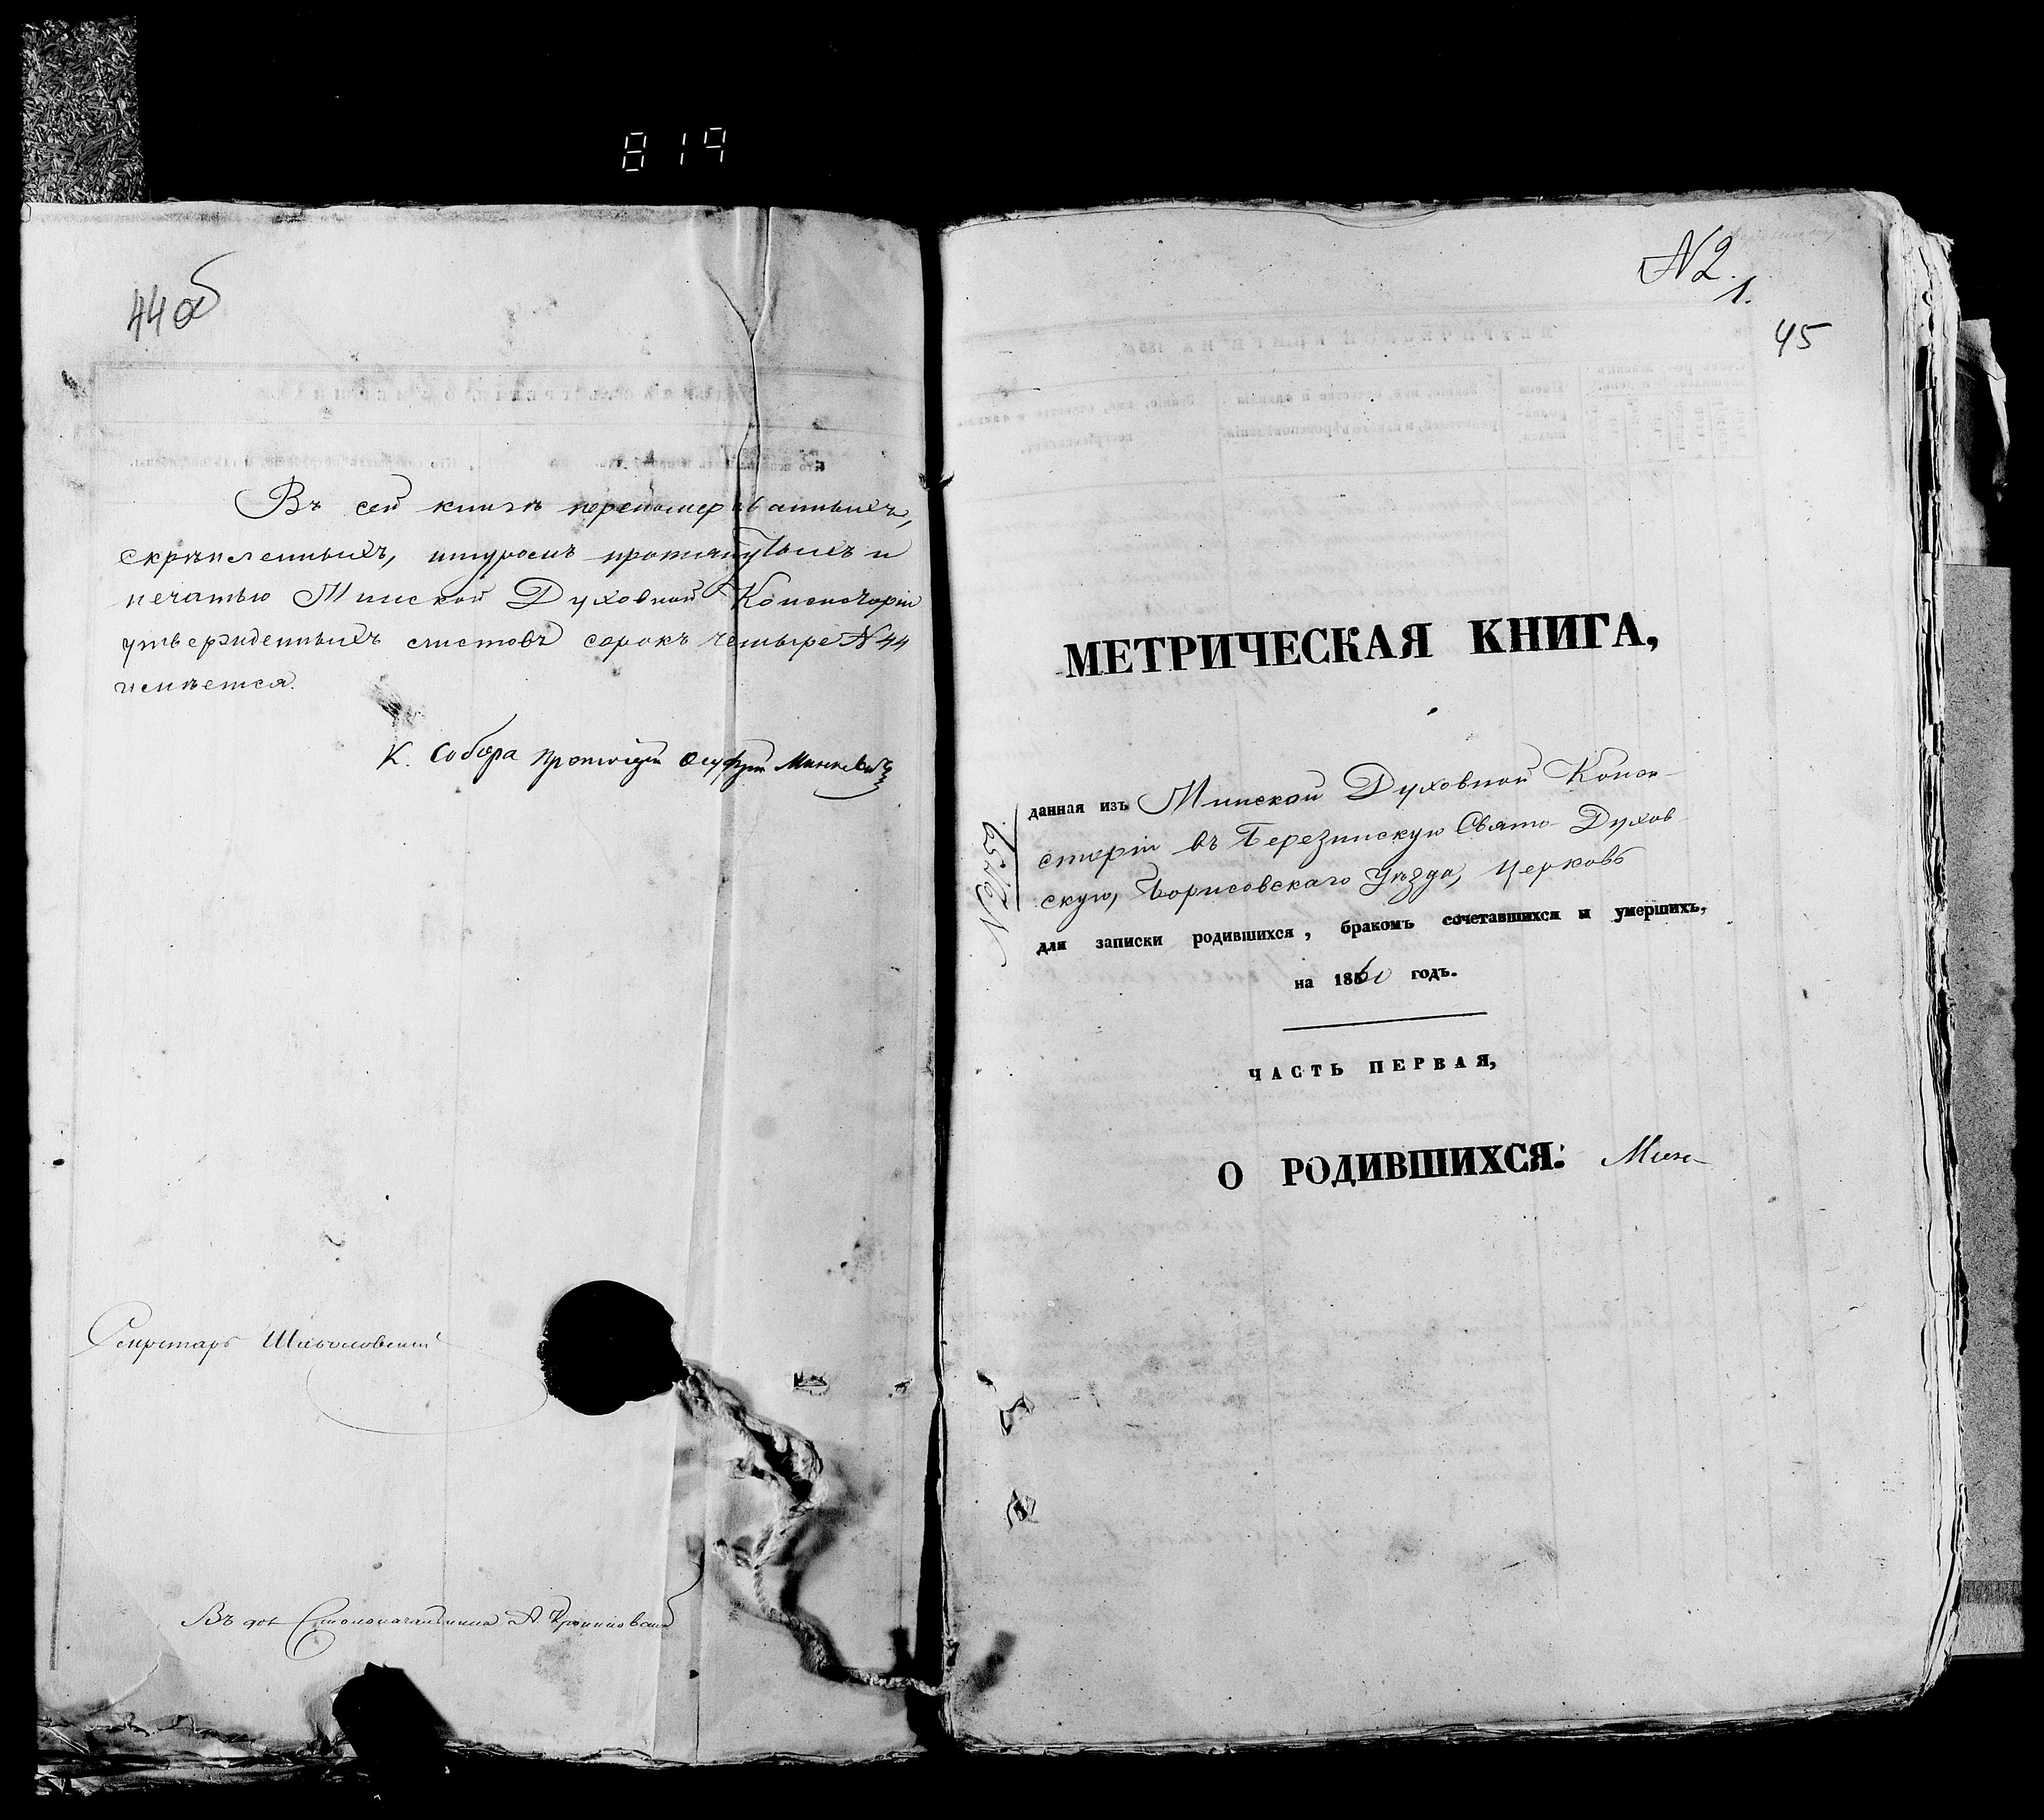 819
44 об
Въ сей книгѣ перенумерованныхъ,
скрѣпленныхъ, шнуромъ протянутыхъ и
печатью Минской Духовной Консисторіи
утвержденныхъ листовъ сорокъ четыре № 44
имѣется.
К. Собора Протоіерей Онуфрій
Секретарь
Въ дол. Столоначальника А.
№ 2.
1.
45
МЕТРИЧЕСКАЯ КНИГА,
данная изъ Минской Духовной Конси-
сторіи въ Березинскую Свято-Духов
скую, Борисовскаго Уѣзда, Церковь
для записки родившихся, бракомъ сочетавшихся и умершихъ,
на 1860 годъ.
ЧАСТЬ ПЕРВАЯ,
О РОДИВШИХСЯ: Мин-